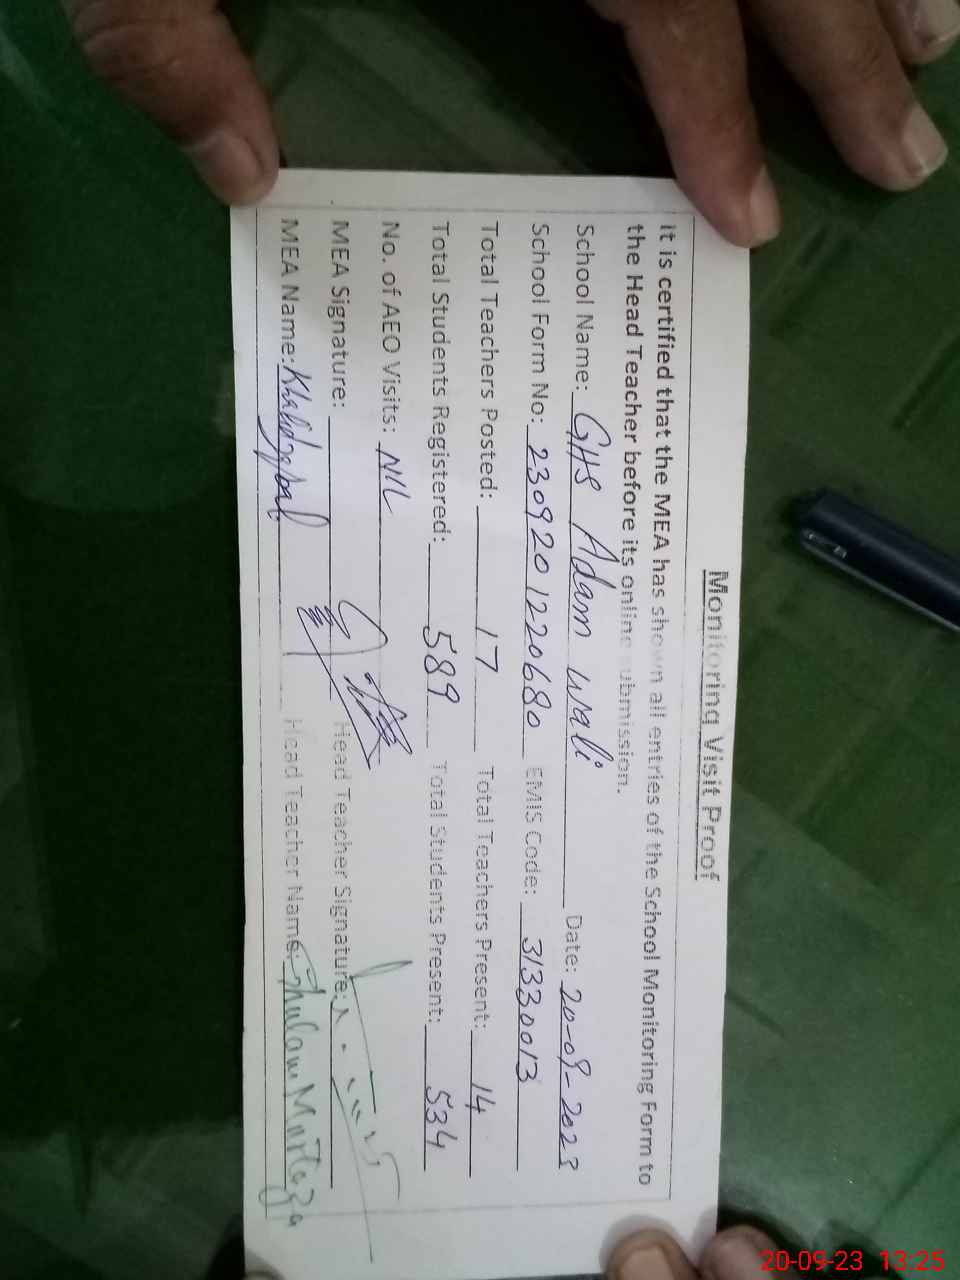 Monitoring Visit Proof
It is certified that the MEA has shown all entries of the School Monitoring Form to
the Head Teacher before its online submission.
School Name: GHS Adam Wali Date: 20-09-2023
School Form No: 2309201220680 EMIS Code: 31330013
Total Teachers Posted: 17 Total Teachers Present: 14
Total Students Registered: 589 Total Students Present: 534
No. of AEO Visits: NIL
MEA Signature: Head Teacher Signature:
MEA Name: Khalid Iqbal Head Teacher Name: Ghulam Murtaza
20-09-23 13:25